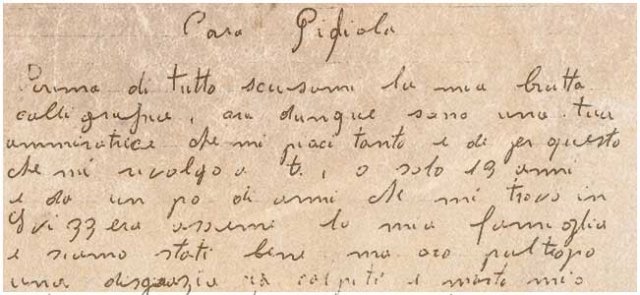 Cara Pidiola
Prima di tutto scusami la mia brutta
calligrafia, ora dunque sono una tua
ammiratrice che mi piaci tanto e di per questo
che mi rivolgo a t., o solo 19 anni
e da un po di anni che mi trovo in
33 era assieme la mia famiglia
e siamo stati bene ma oro pultropo
una disgrazia ca colpiti e morto mio